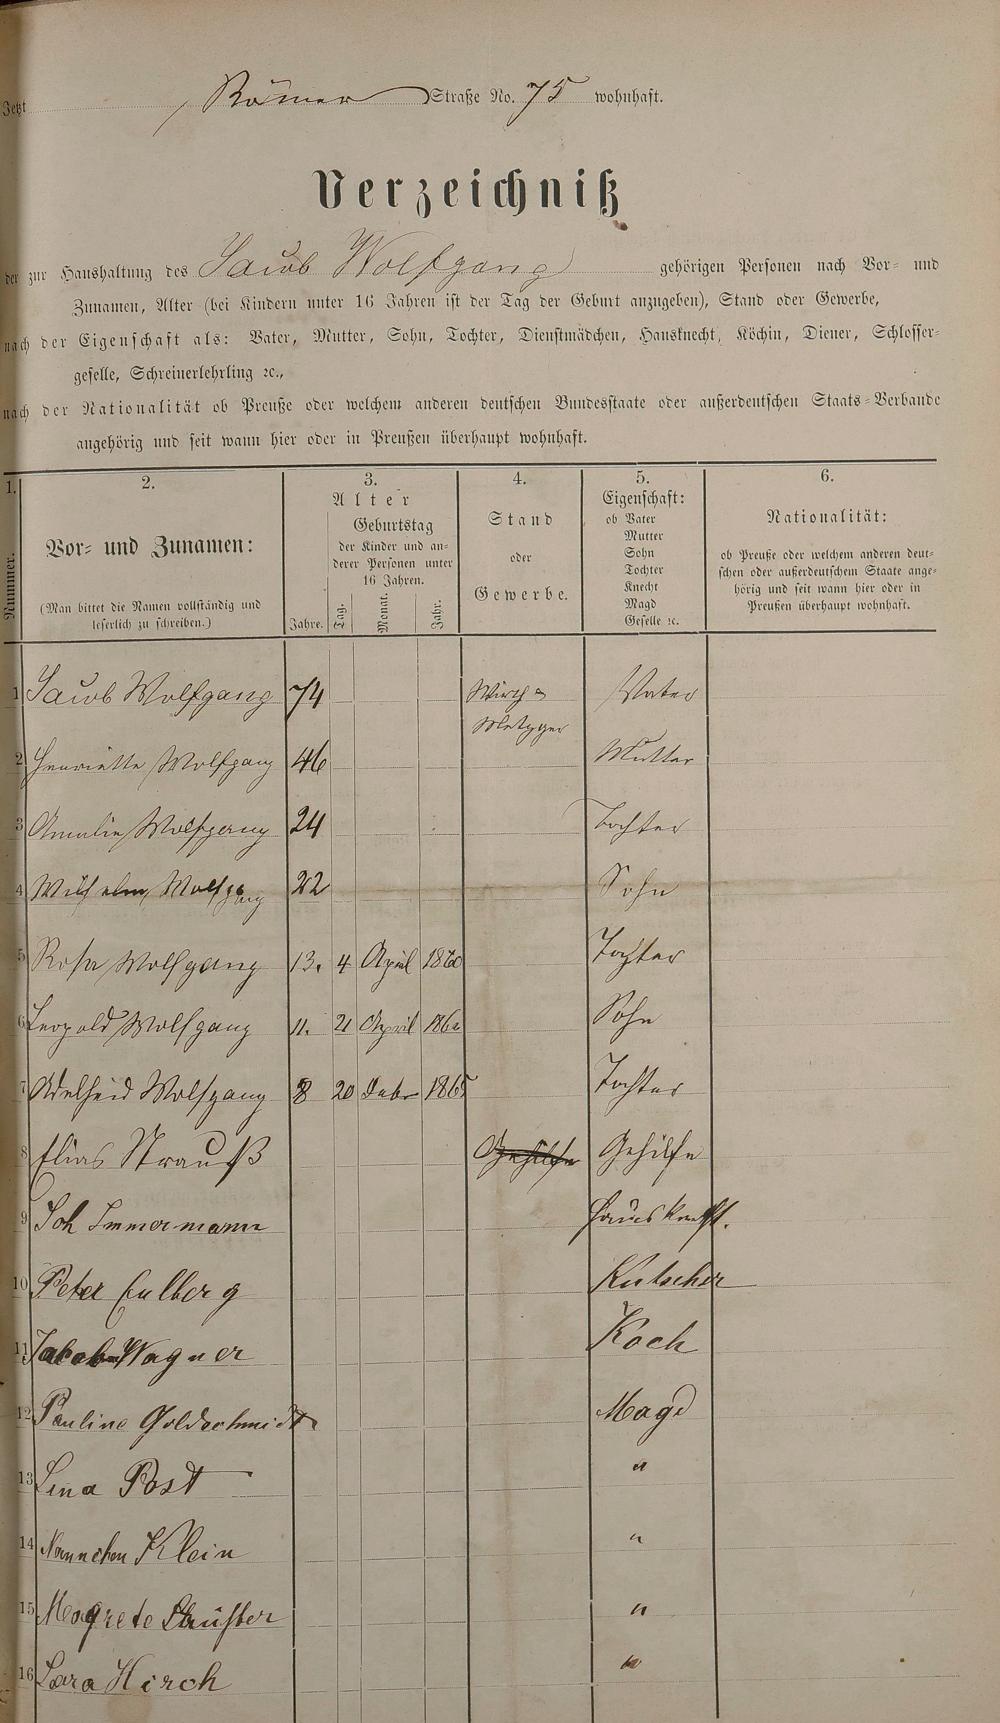 Jetzt Römer Straße No. 75 wohnhaft.
Verzeichniß
der zur Haushaltung des Jacob Wolfgang gehörigen Personen nach Vor- und
Zunamen, Alter (bei Kindern unter 16 Jahren ist der Tag der Geburt anzugeben), Stand oder Gewerbe,
nach der Eigenschaft als: Vater, Mutter, Sohn, Tochter, Dienstmädchen, Hausknecht, Köchin, Diener, Schlosser-
geselle, Schreinerlehrling ꝛc.,
nach der Nationalität ob Preuße oder welchem anderen deutschen Bundesstaate oder außerdeutschen Staats-Verbande
angehörig und seit wann hier oder in Preußen überhaupt wohnhaft.
1. 2. 3. 4. 5. 6.
Nummer.
Vor- und Zunamen:
(Man bittet die Namen vollständig und
leserlich zu schreiben.)
Alter
Geburtstag
der Kinder und an-
derer Personen unter
16 Jahren.
Jahre. Tag. Monat. Jahr.
Stand
oder
Gewerbe.
Eigenschaft:
ob Vater
Mutter
Sohn
Tochter
Knecht
Magd
Geselle ꝛc.
Nationalität:
ob Preuße oder welchem anderen deut-
schen oder außerdeutschem Staate ange-
hörig und seit wann hier oder in
Preußen überhaupt wohnhaft.
1 Jacob Wolfgang 74 Wirth & Vater
Metzger
2 Henriette Wolfgang 46 Mutter
3 Amalie Wolfgang 24 Tochter
4 Wilhelm Wolfgang 22 Sohn
5 Rosa Wolfgang 13. 4 April 1860 Tochter
6 Leopold Wolfgang 11. 21 April 1862 Sohn
7 Adelheid Wolfgang 8 20 1865 Tochter
8 Elias Strauß Gehilfe Gehilfe
9 Joh Immermann Hausknecht.
10 Peter Eulberg Kutscher
11 Jakob Wagner Koch
12 Pauline Goldschmidt Magd
13 Lina Post "
14 Nannchen Klein "
15 Magrete "
16 Sara Hirch "